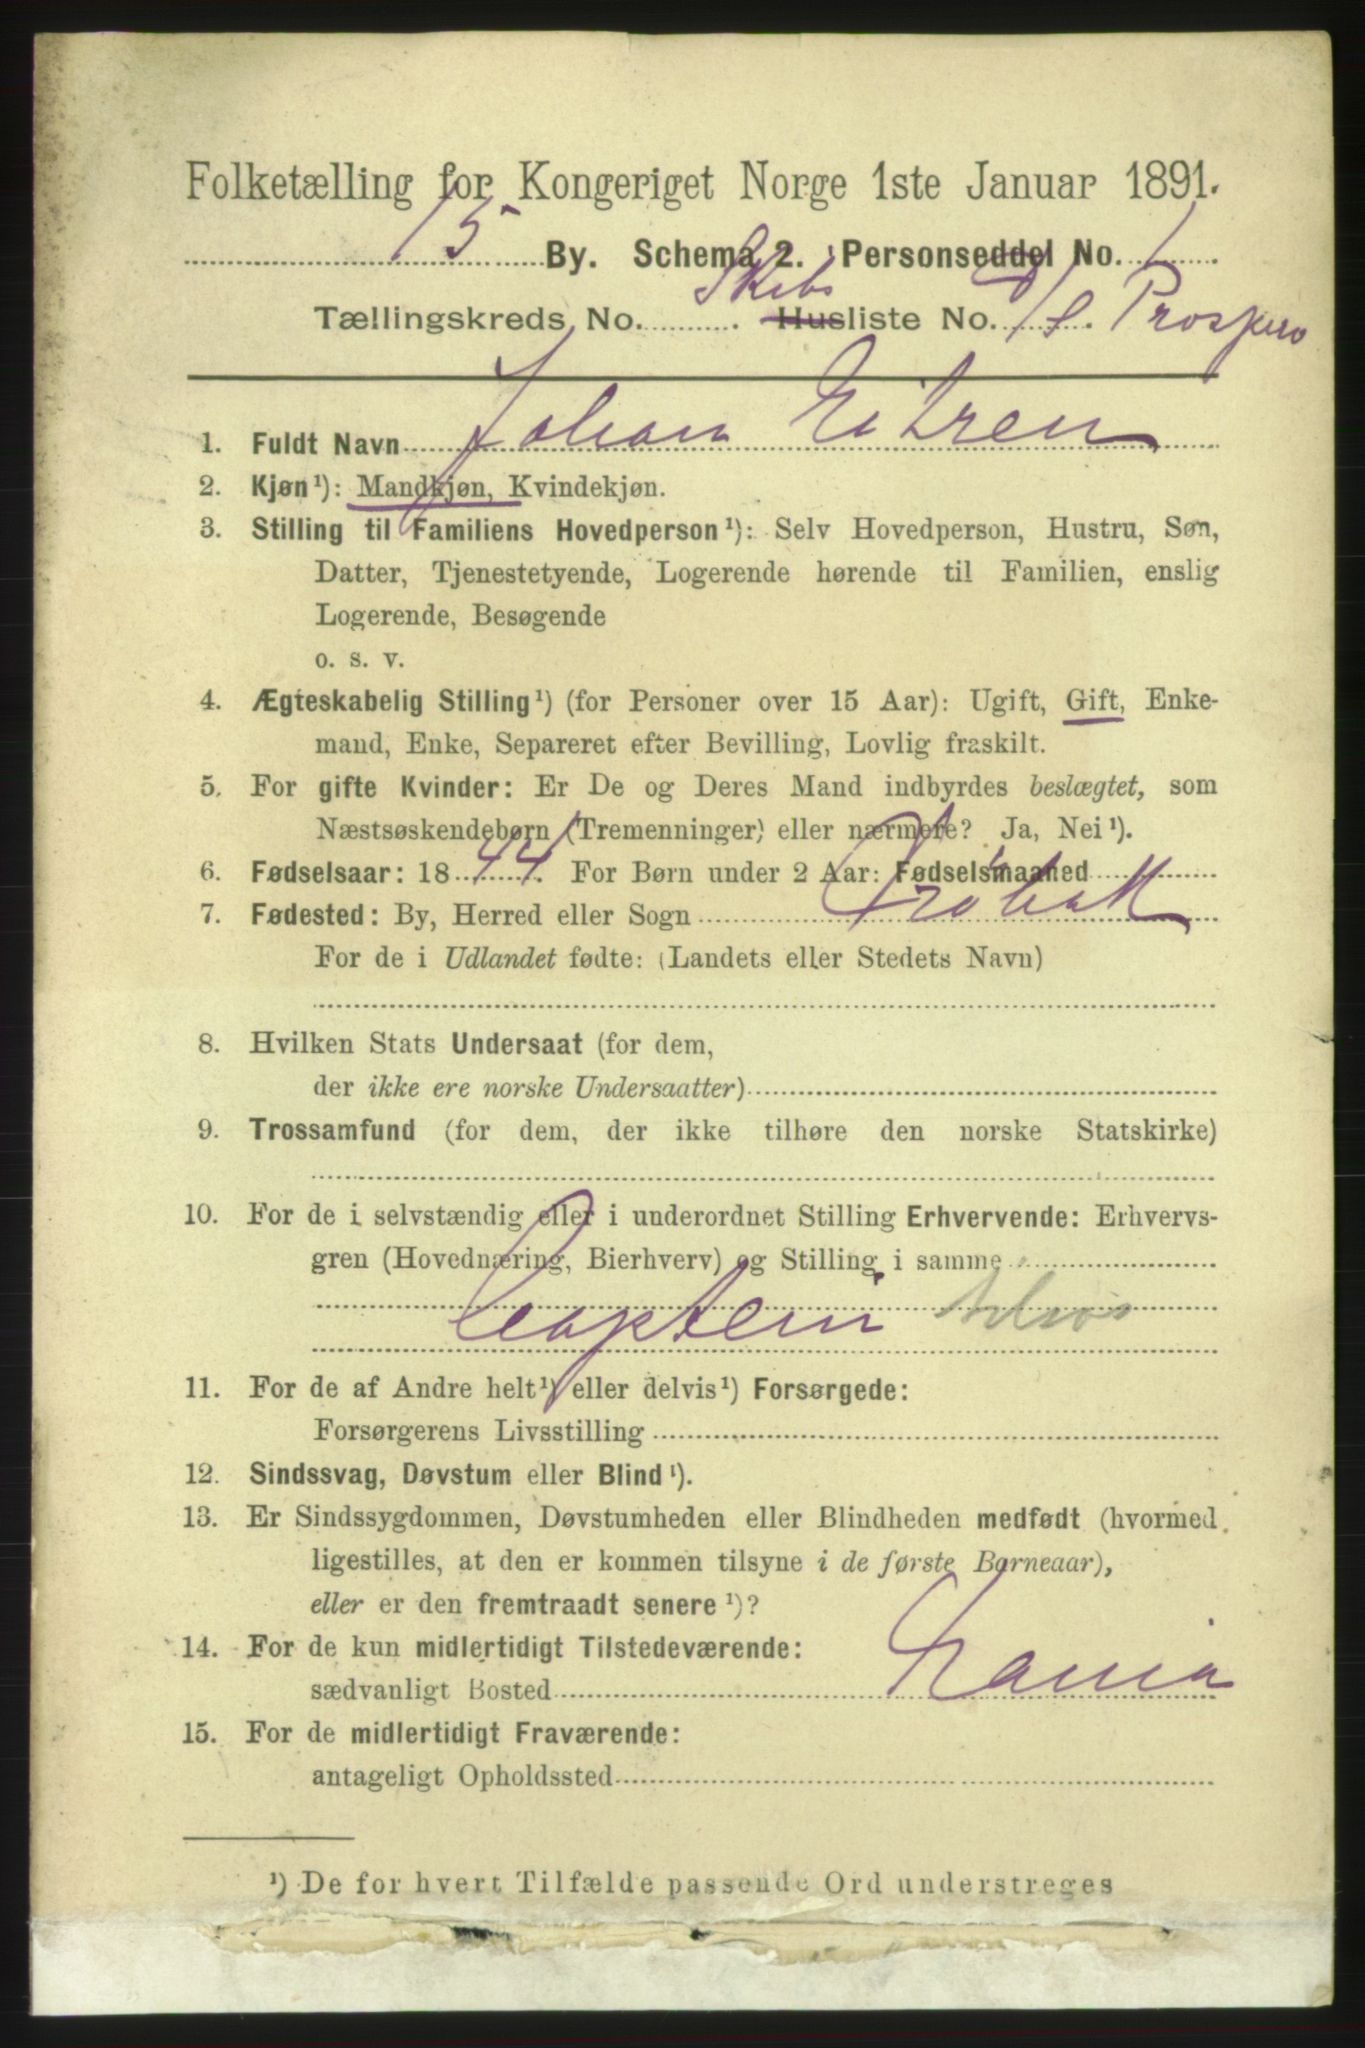 Folketælling for Kongeriget Norge 1ste Januar 1891.
15 By. Schema 2. Personseddel No. 1
Tællingskreds No. . Skibs Husliste No. D/S. Prospero
1. Fuldt Navn Johan
2. Kjøn¹): Mandkjøn, Kvindekjøn.
3. Stilling til Familiens Hovedperson¹): Selv Hovedperson, Hustru, Søn,
Datter, Tjenestetyende, Logerende hørende til Familien, enslig
Logerende, Besøgende
o. s. v.
4. Ægteskabelig Stilling¹) (for Personer over 15 Aar): Ugift, Gift, Enke-
mand, Enke, Separeret efter Bevilling, Lovlig fraskilt.
5. For gifte Kvinder: Er De og Deres Mand indbyrdes beslægtet, som
Næstsøskendebørn (Tremenninger) eller nærmere? Ja, Nei¹).
6. Fødselsaar: 1844. For Børn under 2 Aar: Fødselsmaaned
7. Fødested: By, Herred eller Sogn Drøbak
For de i Udlandet fødte: (Landets eller Stedets Navn)
8. Hvilken Stats Undersaat (for dem,
der ikke ere norske Undersaatter)
9. Trossamfund (for dem, der ikke tilhøre den norske Statskirke)
10. For de i selvstændig eller i underordnet Stilling Erhvervende: Erhvervs-
gren (Hovednæring, Bierhverv) og Stilling i samme
Captein
11. For de af Andre helt¹) eller delvis¹) Forsørgede:
Forsørgerens Livsstilling
12. Sindssvag, Døvstum eller Blind¹).
13. Er Sindssygdommen, Døvstumheden eller Blindheden medfødt (hvormed
ligestilles, at den er kommen tilsyne i de første Barneaar),
eller er den fremtraadt senere¹)?
14. For de kun midlertidigt Tilstedeværende:
sædvanligt Bosted Xania
15. For de midlertidigt Fraværende:
antageligt Opholdssted
¹) De for hvert Tilfælde passende Ord understreges